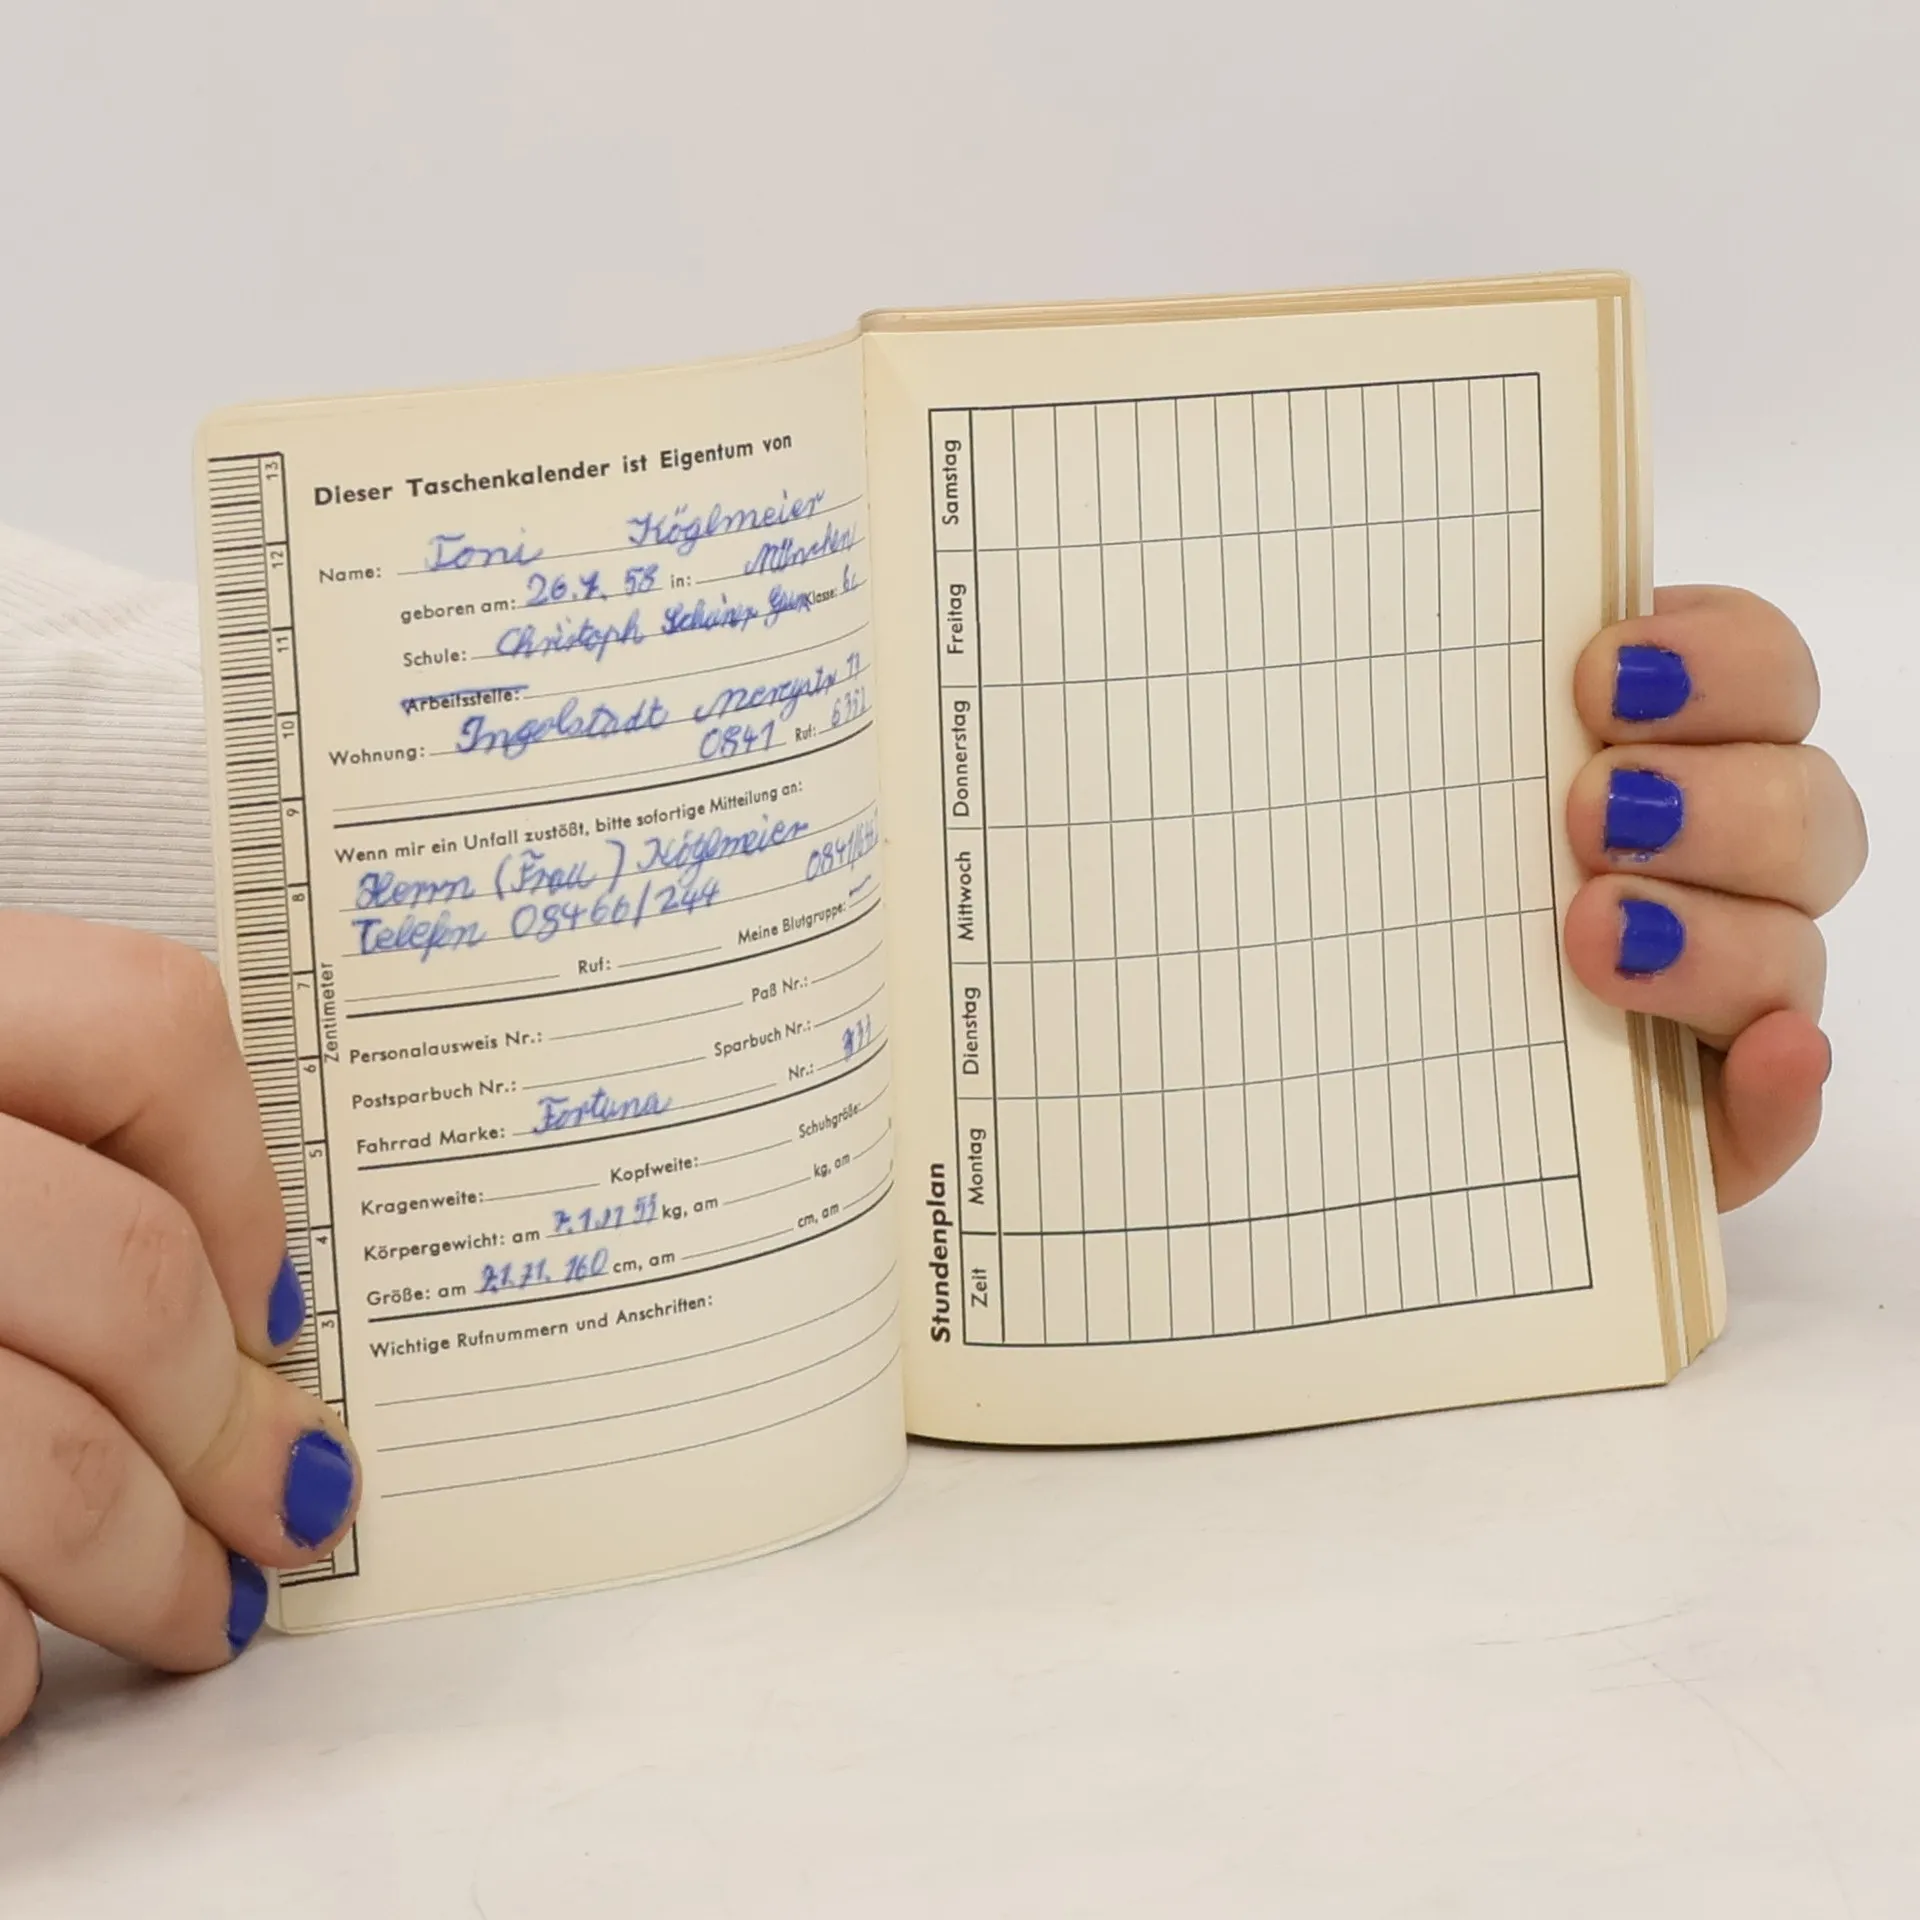 Dieser Taschenkalender ist Eigentum von
Name: Toni Köglmeier
geboren am: 26.7. 58 in: München
Schule: Christoph Scheiner Gym Klasse: 6c
Arbeitsstelle:
Wohnung: Ingolstadt 11
0841 Ruf:
Wenn mir ein Unfall zustößt, bitte sofortige Mitteilung an:
Herrn (Frau) Köglmeier
Telefon 08466/244
Ruf: Meine Blutgruppe: —
Personalausweis Nr.: Paß Nr.:
Postsparbuch Nr.: Sparbuch Nr.:
Fahrrad Marke: Fortuna Nr.:
Kragenweite: Kopfweite: Schuhgröße:
Körpergewicht: am kg, am kg, am
Größe: am 7.1.71. 160 cm, am cm, am
Wichtige Rufnummern und Anschriften:
Zentimeter
3
4
5
6
7
8
9
10
11
12
13
Stundenplan
Zeit Montag Dienstag Mittwoch Donnerstag Freitag Samstag